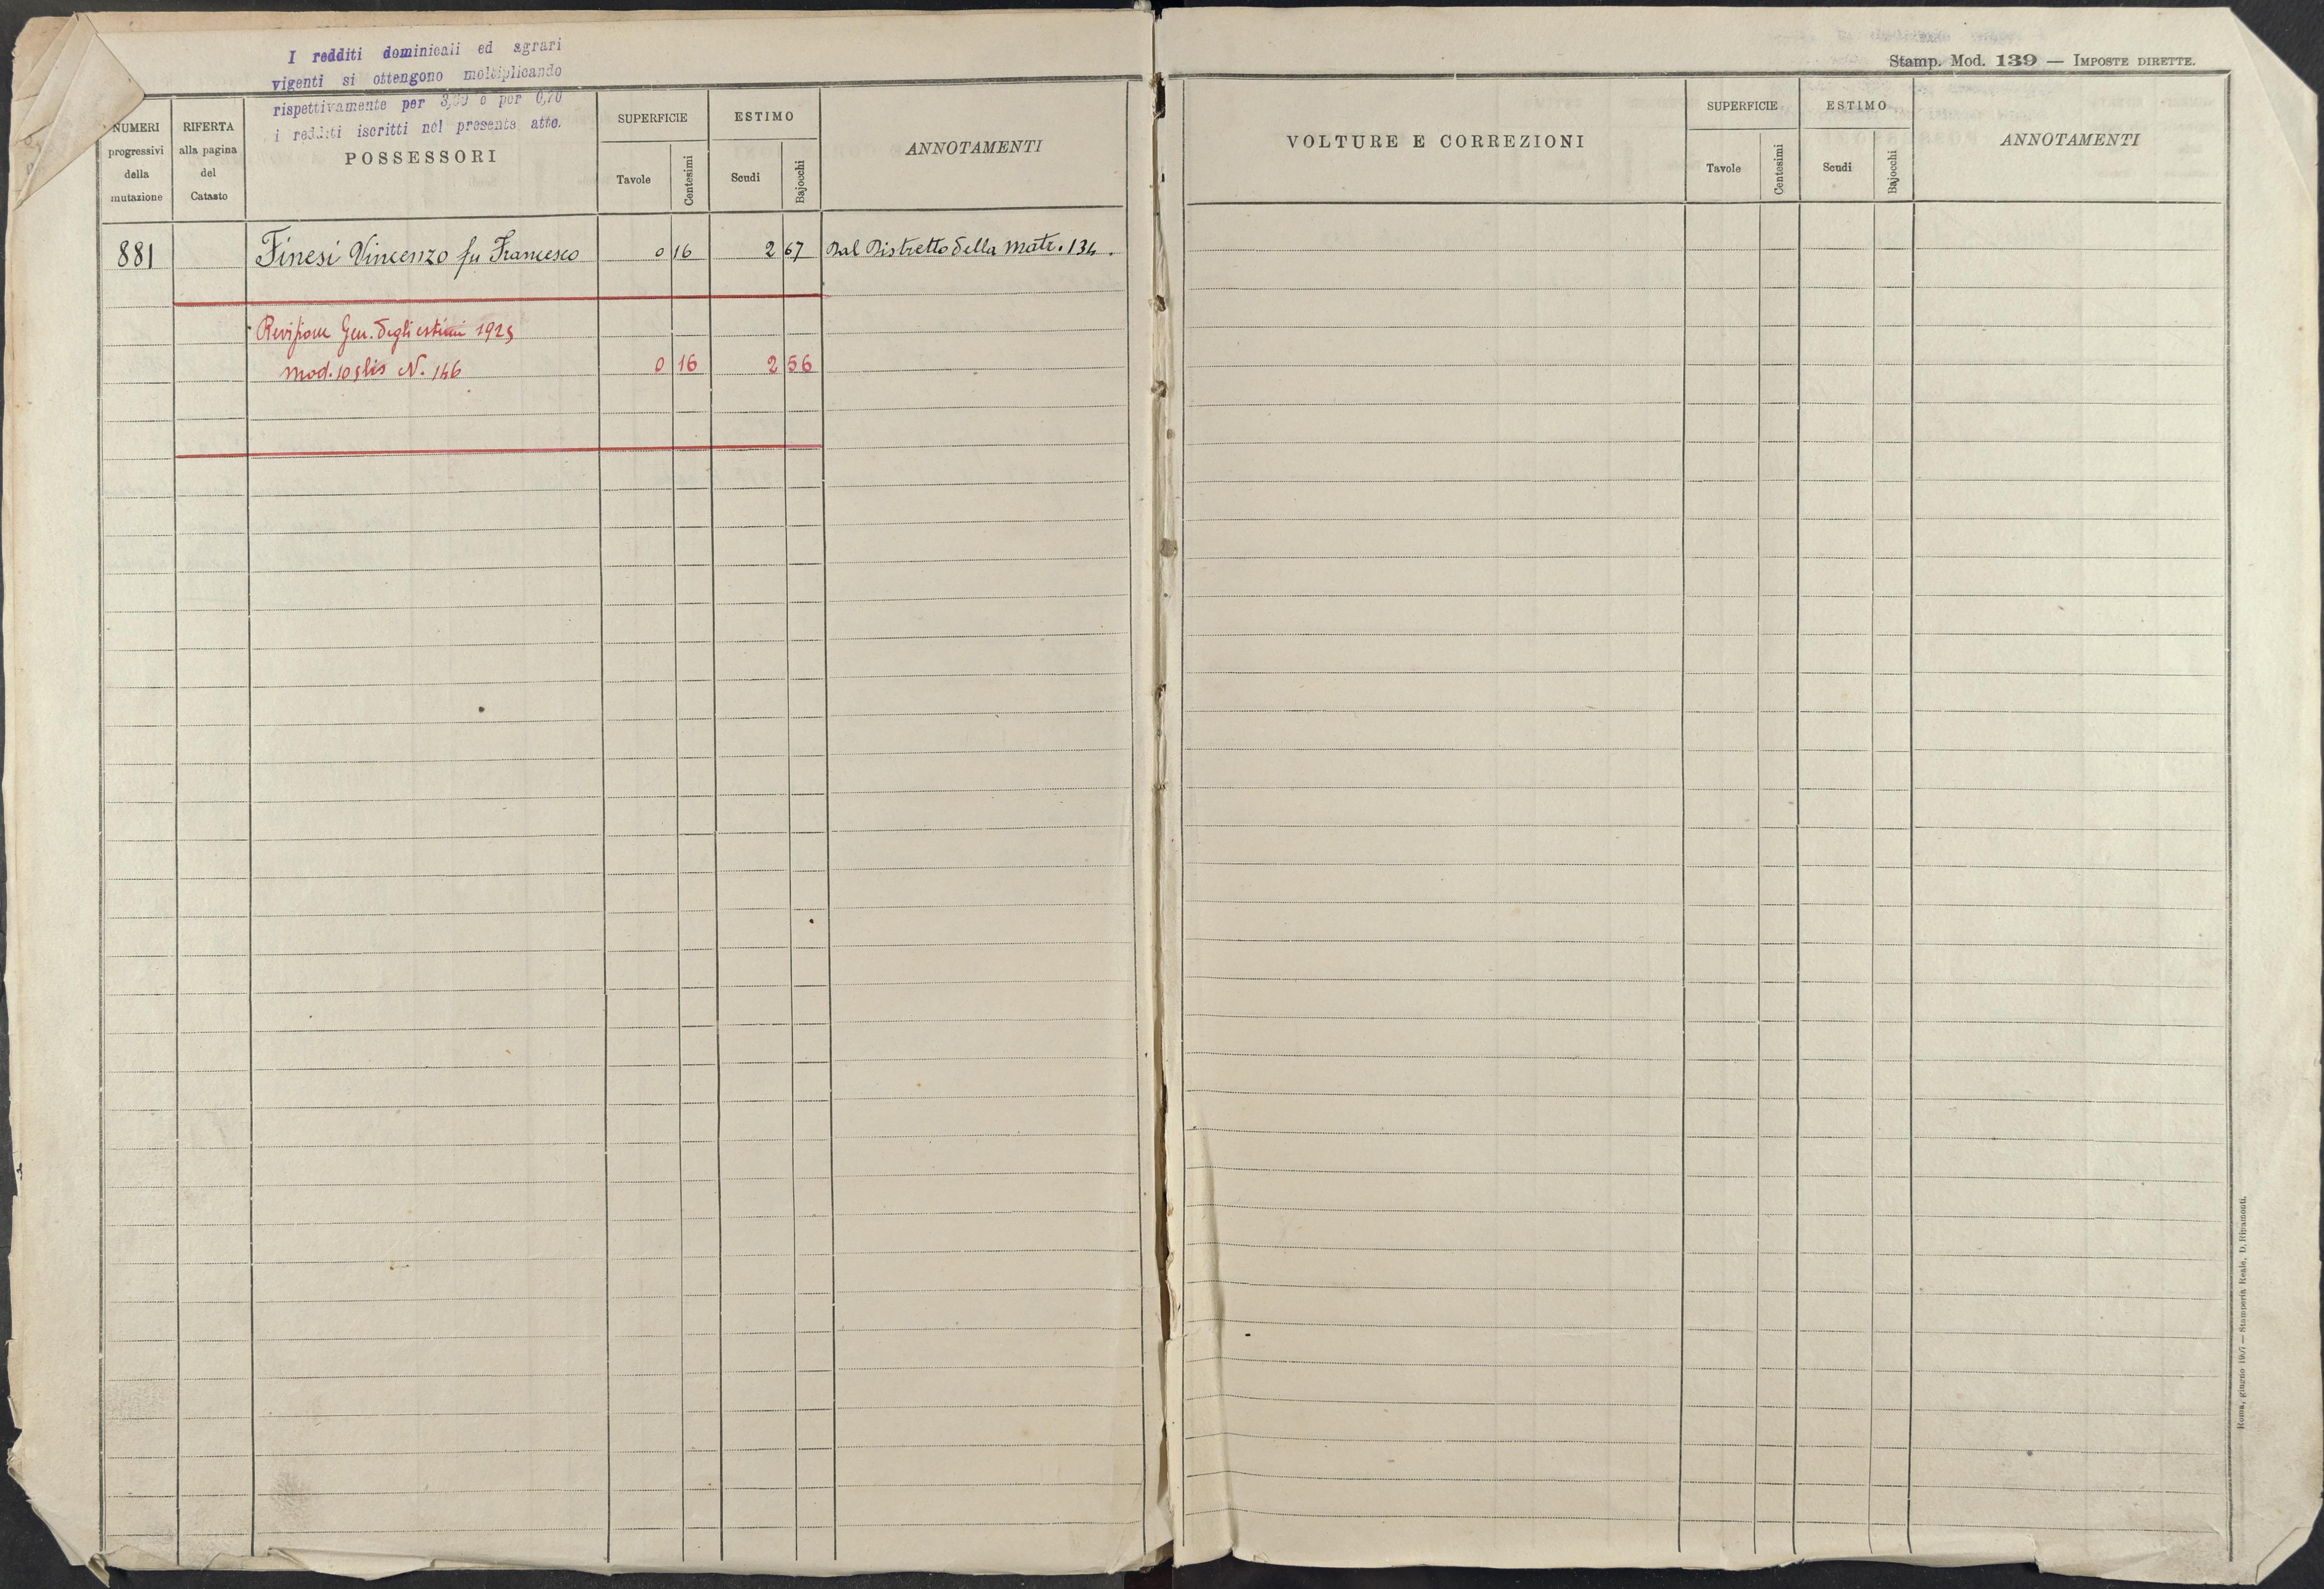 I redditi dominicali ed agrari
vigenti si ottengono moltiplicando
rispettivamente per e per 0,70
i redditi iscritti nel presente atto.
NUMERI
progressivi
della
mutazione
RIFERTA
alla pagina
del
Catasto
POSSESSORI
SUPERFICIE
Tavole
Centesimi
ESTIMO
Scudi
Bajocchi
ANNOTAMENTI
881 Finesi Vincenzo fu Francesco 0 16 2 67 Dal Distretto della Matr. 134.
Revisione Gen. degli estimi 1925
mod. N. 146 0 16 2 56
Stamp. Mod. 139 — IMPOSTE DIRETTE.
VOLTURE E CORREZIONI
SUPERFICIE
Tavole
Centesimi
ESTIMO
Scudi
Bajocchi
ANNOTAMENTI
Roma, giugno 1907 — Stamperia Reale, D. Ripamonti.